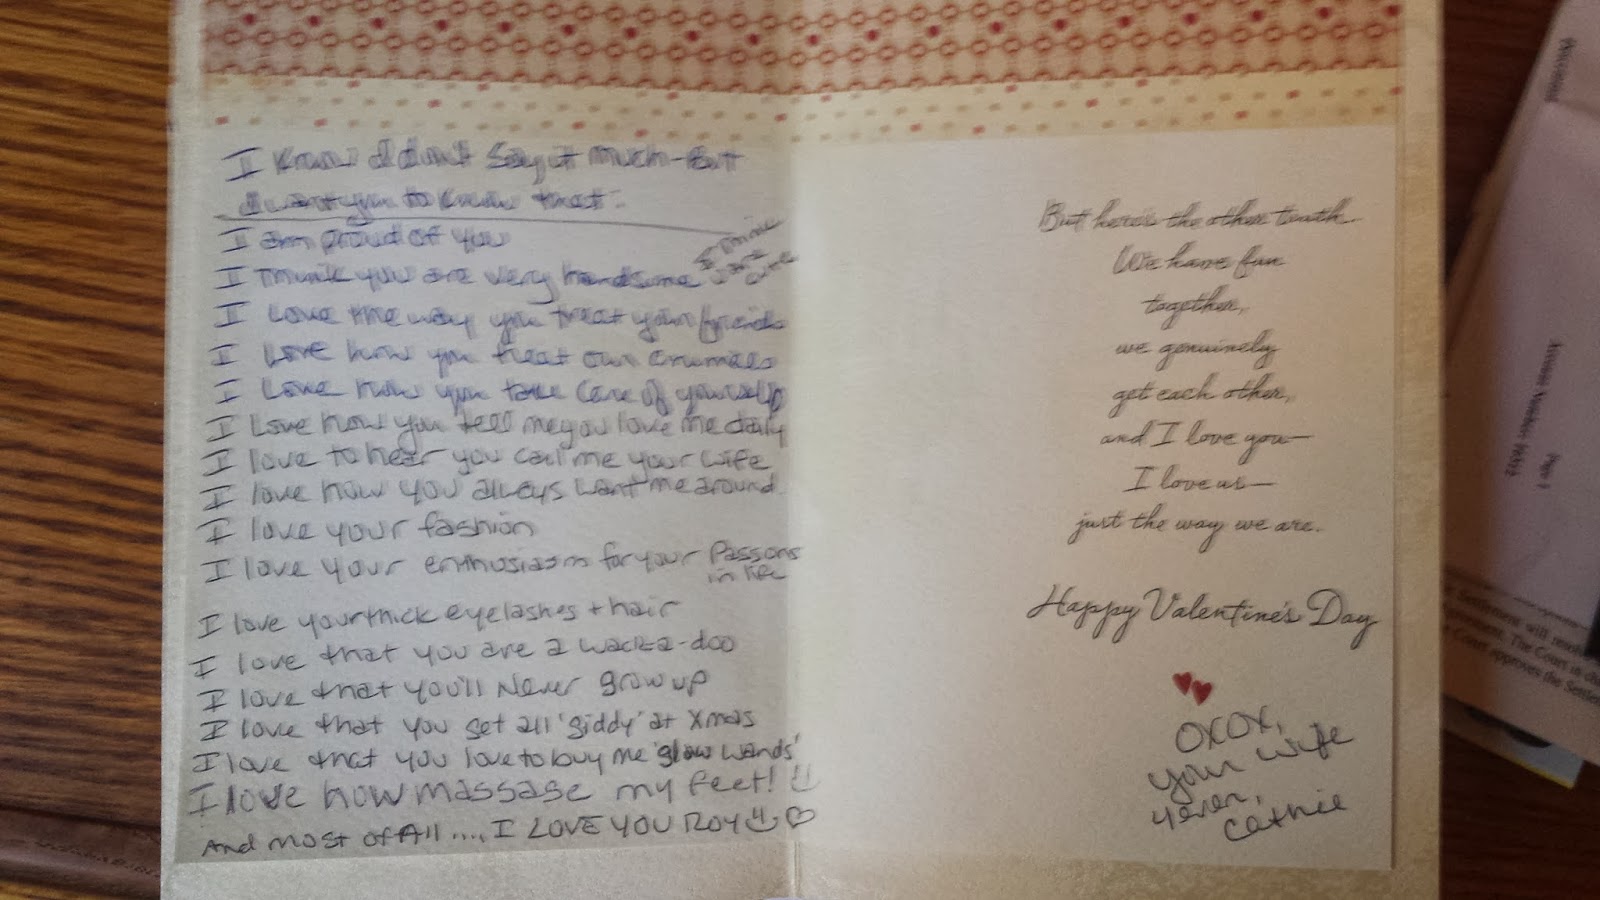 I know I don't say it much - But
I want you to know that:
I am proud of you
I think you are very handsome
I love the way you treat your friends
I love how you treat our animals
I love how you take care of yourself
I love how you tell me you love me daily
I love to hear you call me your wife
I love how you always want me around
I love your fashion
I love your enthusiasm for your Passions
in life
I love your thick eyelashes + hair
I love that you are a wack-a-doo
I love that you'll Never grow up
I love that you get all 'giddy' at Xmas
I love that you love to buy me 'glow wands'
I love how massage my feet!
And most of All .... I LOVE YOU ROY
But here's the other truth—
We have fun
together,
we genuinely
get each other,
and I love you—
I love us—
just the way we are.
Happy Valentine's Day
OXOX,
your wife
4ever,
Cathie
Page 7
Settlement will
The Court
Court approves the